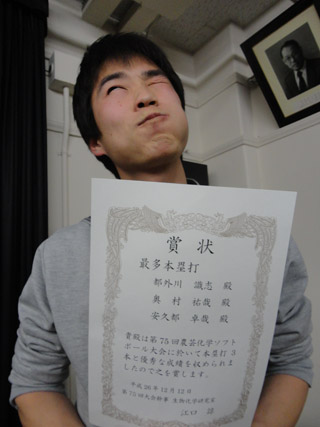 賞状
最多本塁打
都外川 識志 殿
奥村 祐哉 殿
安久都 卓哉 殿
貴殿は第75回農芸化学ソフト
ボール大会に於いて本塁打3
本と優秀な成績を収められま
したので之を賞します。
平成26年12月12日
第75回大会幹事 生物化学研究室